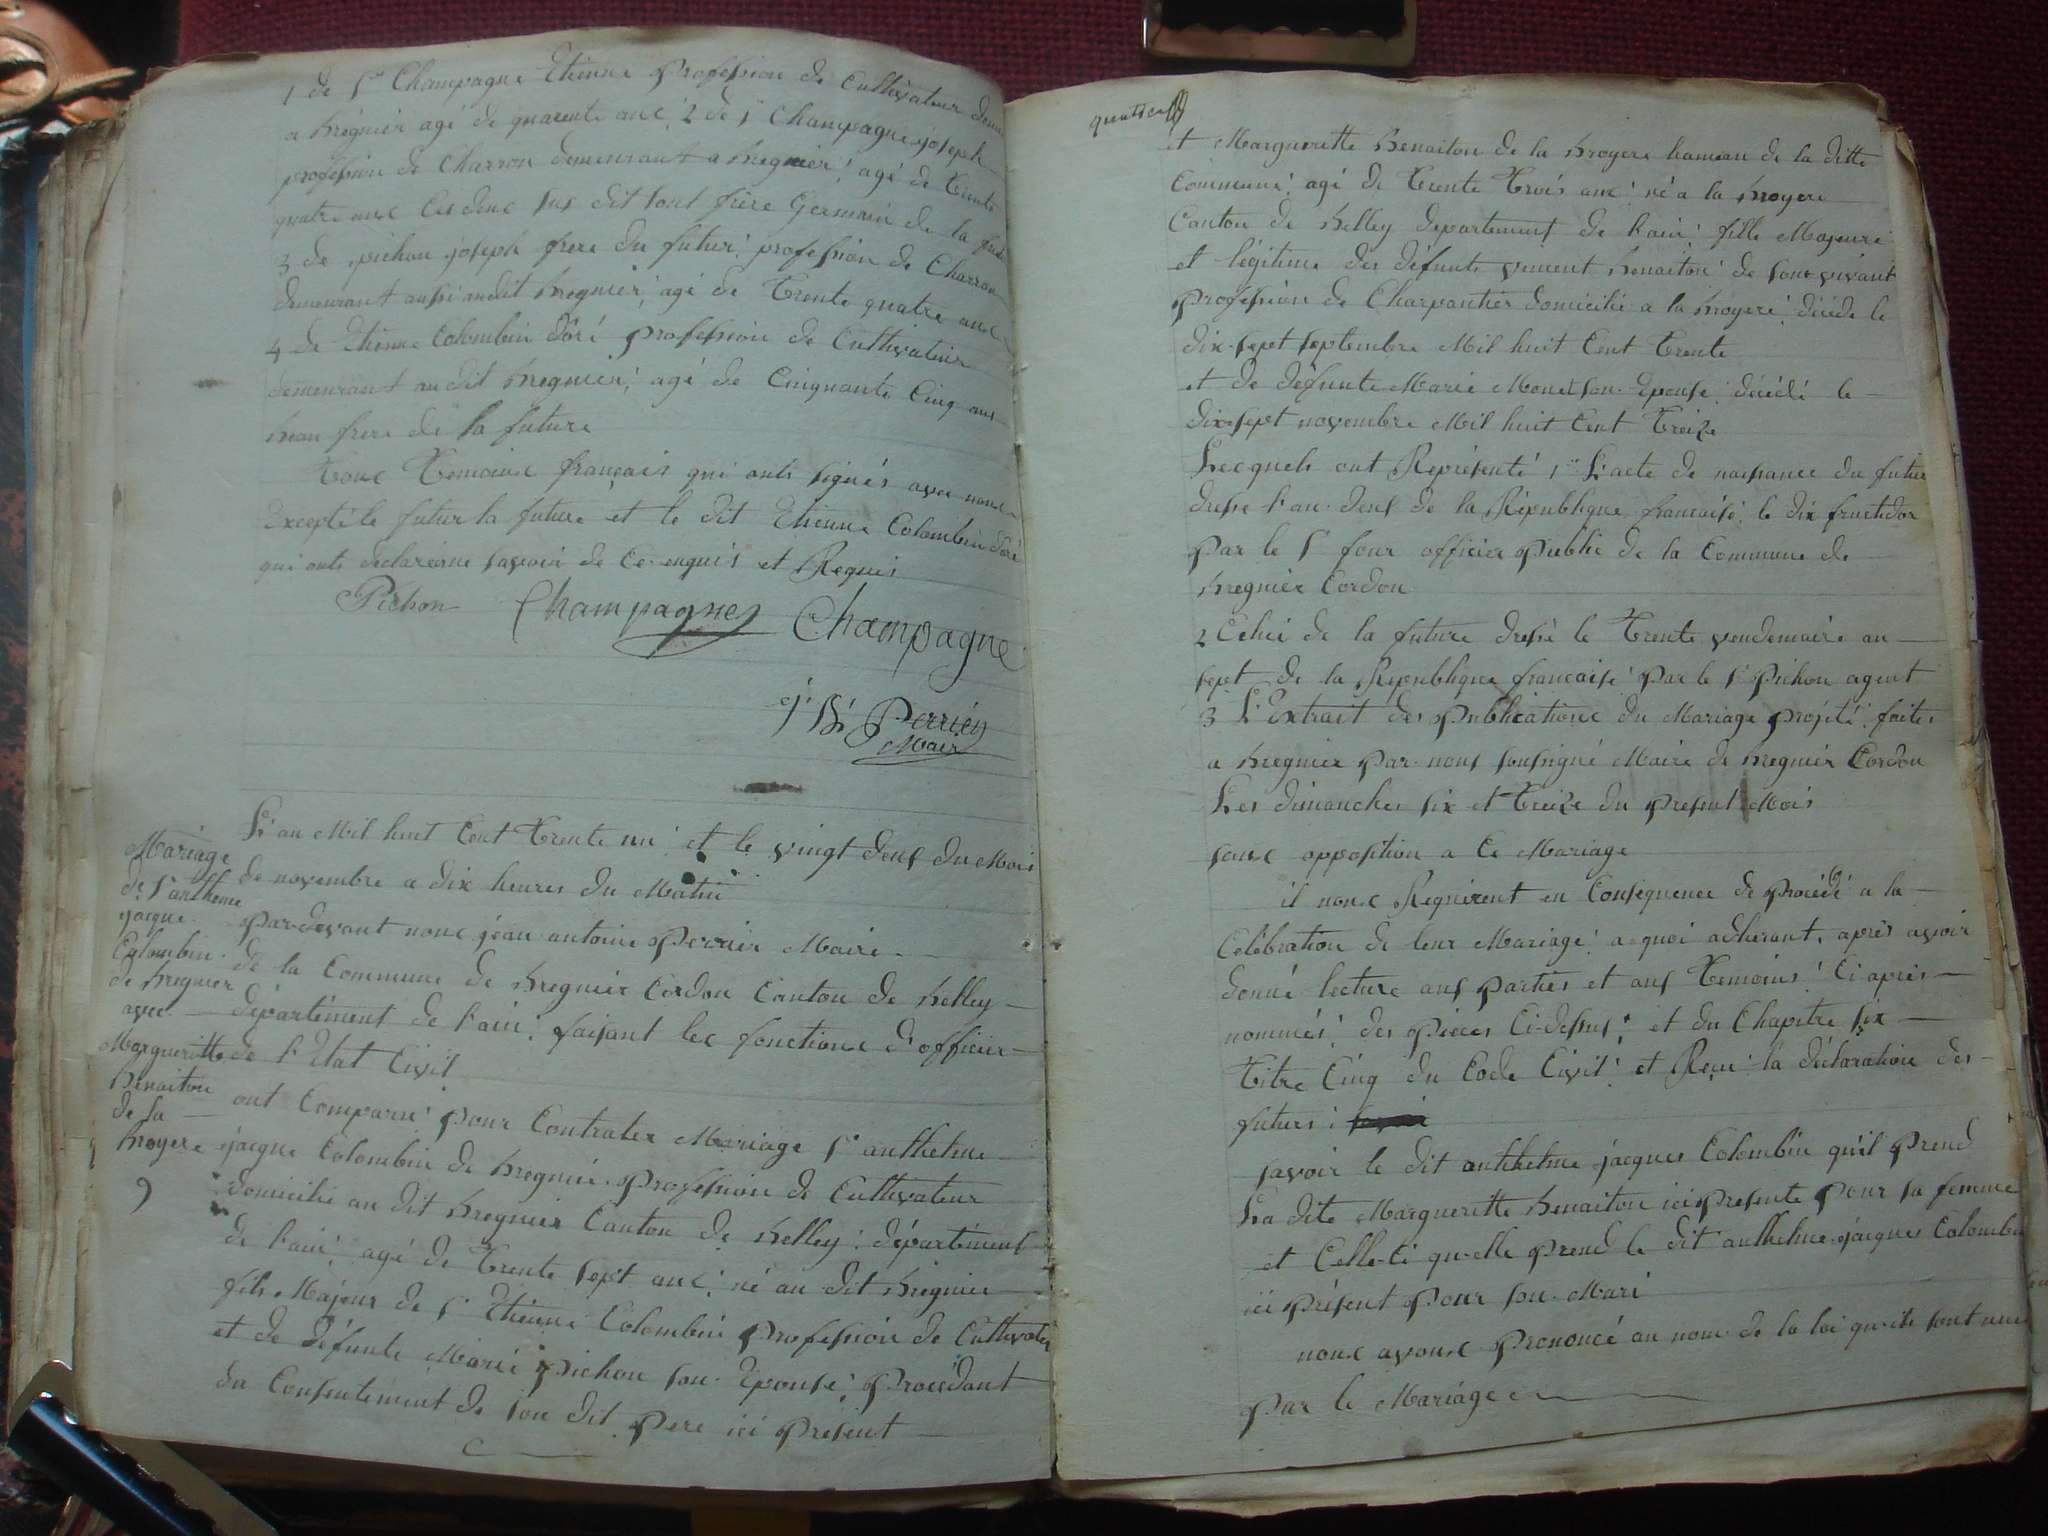 1 de Sr Champagne Etienne profession de Cultivateur
a Bregnier agé de quarente ans, 2 de Sr Champagne joseph
profession de Charron demeurant a Bregnier, agé de Trente
quatre ans Les deux sus dit sont frère Germain de la
3 de pichon joseph frere du futur, profession de Charron
demeurant aussi audit Bregnier, agé de Trente quatre ans
4 de Etienne Colombin doré profession de Cultivateur
demeurant au dit Bregnier, agé de Cinquante Cinq ans
beau frere de la future
Tous Temoins français qui onts signés avec nous
Excepté le futur la future et le dit Etienne Colombin doré
qui onts declaré ne savoir de Ce enquis et Requis
Pichon Champagne Champagne
j. Bte Perrin
Maire
L'an Mil huit Cent Trente un et le vingt deux du Mois
de novembre a dix heures du Matin
Par-devant nous jean antoine Perrin Maire
de la Commune de Bregnier Cordon Canton de Belley
département de l'ain, faisant les fonctions d'officier
de l'Etat Civil
ont Comparu pour Contrater Mariage Sr anthelme
jacque Colombin de Bregnier profession de Cultivateur
domicilié au dit Bregnier Canton de Belley, département
de l'ain, agé de Trente sept ans, né au dit Bregnier
fils Majeur de Sr Etienne Colombin profession de Cultivateur
et de défunte Marie pichon son Epouse, procédant
du Consentement de son dit pere ici présent
Mariage
de Sr anthelme
jacque
Colombin
de Bregnier
avec
Margueritte
Benaiton
de la
Broyere
9
et Margueritte Benaiton de la Broyere hameau de la ditte
Commune, agé de Trente Trois ans, né a la Broyere
Canton de Belley departement de l'ain, fille Majeure
et légitime des défunts vincent Benaiton de son vivant
profession de Charpantier domicilié a la Broyere, décédé le
dix-sept septembre Mil huit Cent Trente
et de défunte Marie Monet son Epouse, décédé le
dix-sept novembre Mil huit Cent Treize
Lesquels ont Représenté 1° L'acte de naissance du futur
dressé l'an deux de la République française, le dix fructidor
par le Sr four officier public de la Commune de
Bregnier Cordon
2 Celui de la future dressé le Trente vendemaire an
sept de la Republique française par le Sr Pichon agent
3 L'Extrait des publications du Mariage projeté, faites
a Bregnier par nous soussigné Maire de Bregnier Cordon
Les dimanches six et Treize du présent Mois
sans opposition a Ce Mariage
il nous Requirent en Conséquence de procédé a la
Célébration de leur Mariage, a quoi adherant, après avoir
donné lecture aux parties et aux Temoins, Ci après
nommés, des pièces Ci-dessus, et du Chapitre six
Titre Cinq du Code Civil, et Reçu la déclaration des
futurs,
savoir le dit anthelme jacques Colombin qu'il prend
La dite Margueritte Benaiton ici présente pour sa femme
et Celle-Ci qu-elle prend le dit anthelme jacques Colombin
ici présent pour son Mari
nous avons prononcé au nom de la loi qu-ils sont unis
par le Mariage